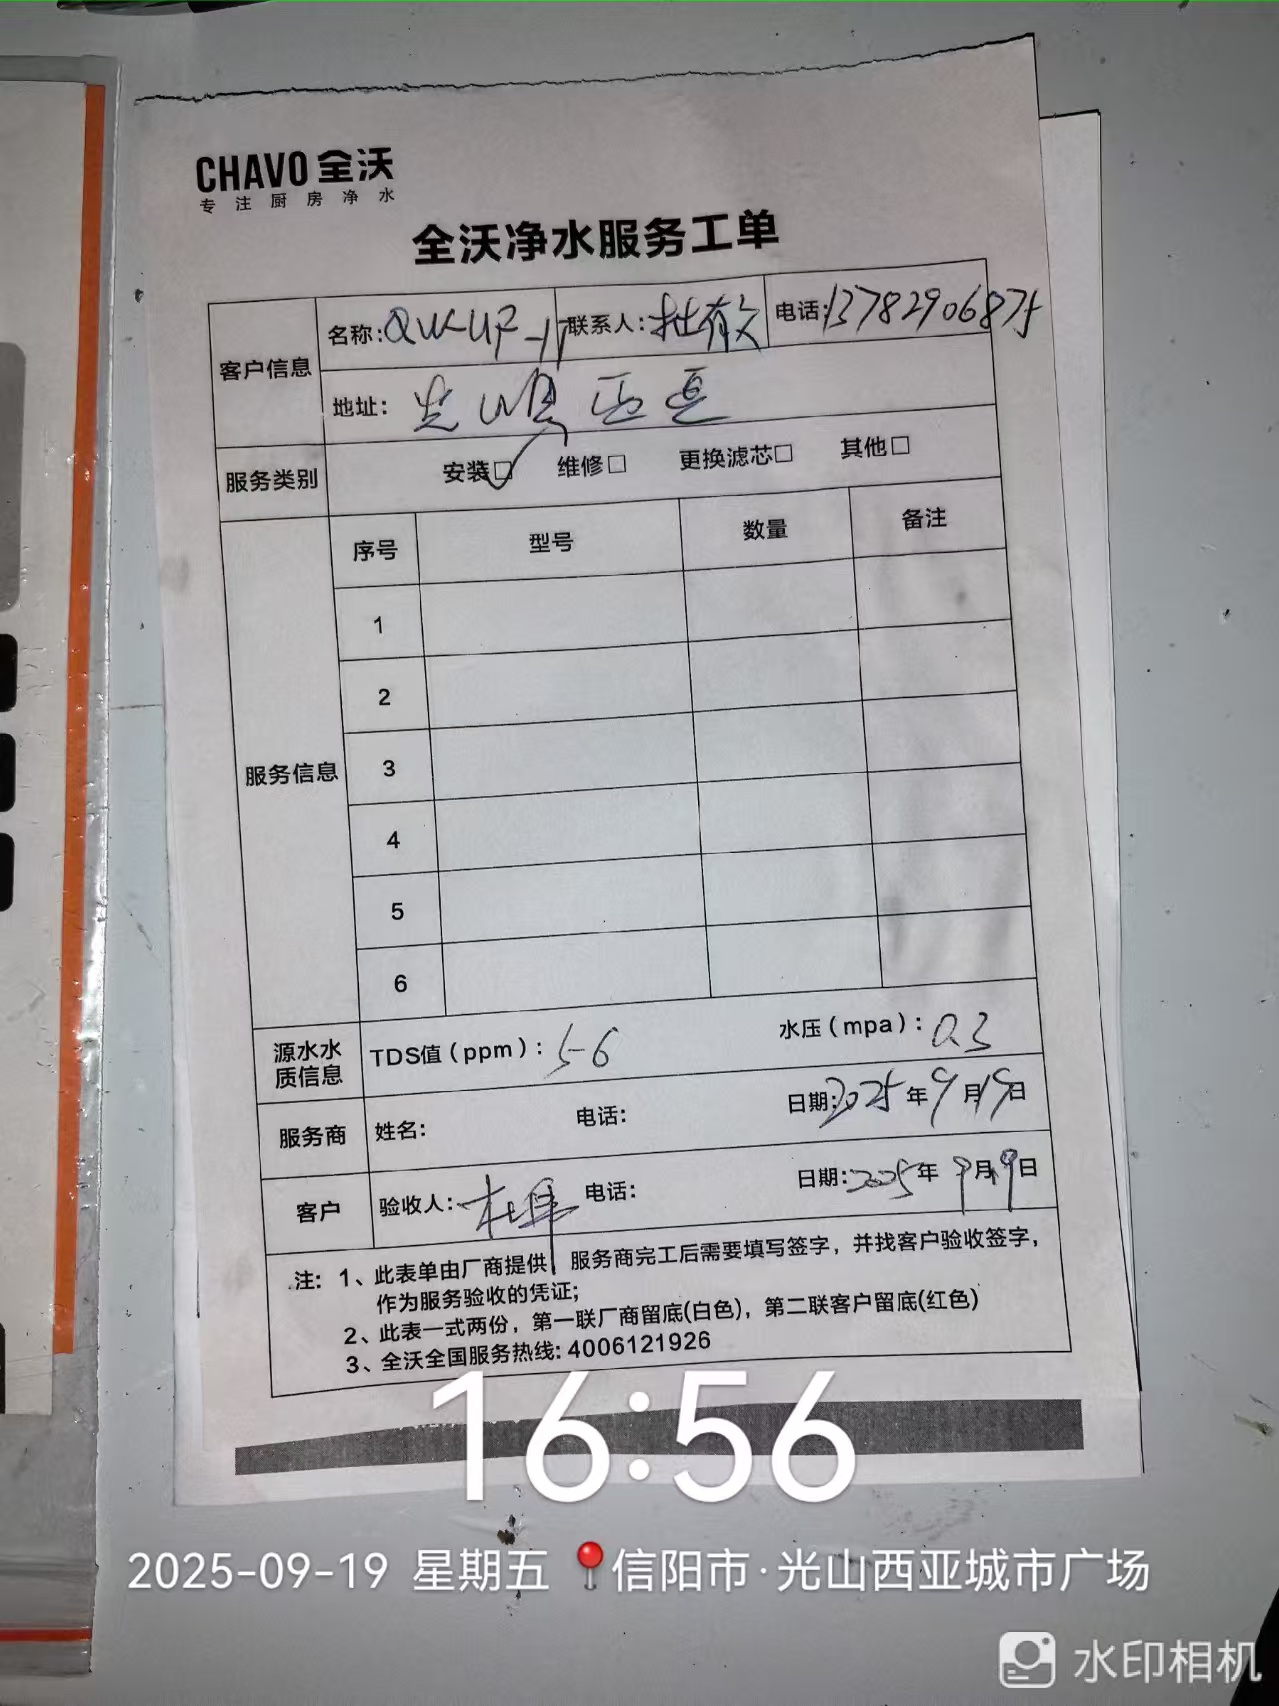 CHAVO 全沃
专注厨房净水
全沃净水服务工单
客户信息 名称: 联系人: 电话:13782906875
地址: 光山县西亚
服务类别 安装☑ 维修□ 更换滤芯□ 其他□
服务信息 序号 型号 数量 备注
1
2
3
4
5
6
源水水质信息 TDS值(ppm): 56 水压(mpa): 0.3
服务商 姓名: 电话: 日期:2025年9月19日
客户 验收人: 电话: 日期:2025年9月19日
注: 1、此表单由厂商提供 服务商完工后需要填写签字,并找客户验收签字,
作为服务验收的凭证;
2、此表一式两份,第一联厂商留底(白色),第二联客户留底(红色)
3、全沃全国服务热线: 4006121926
16:56
2025-09-19 星期五 信阳市·光山西亚城市广场
水印相机